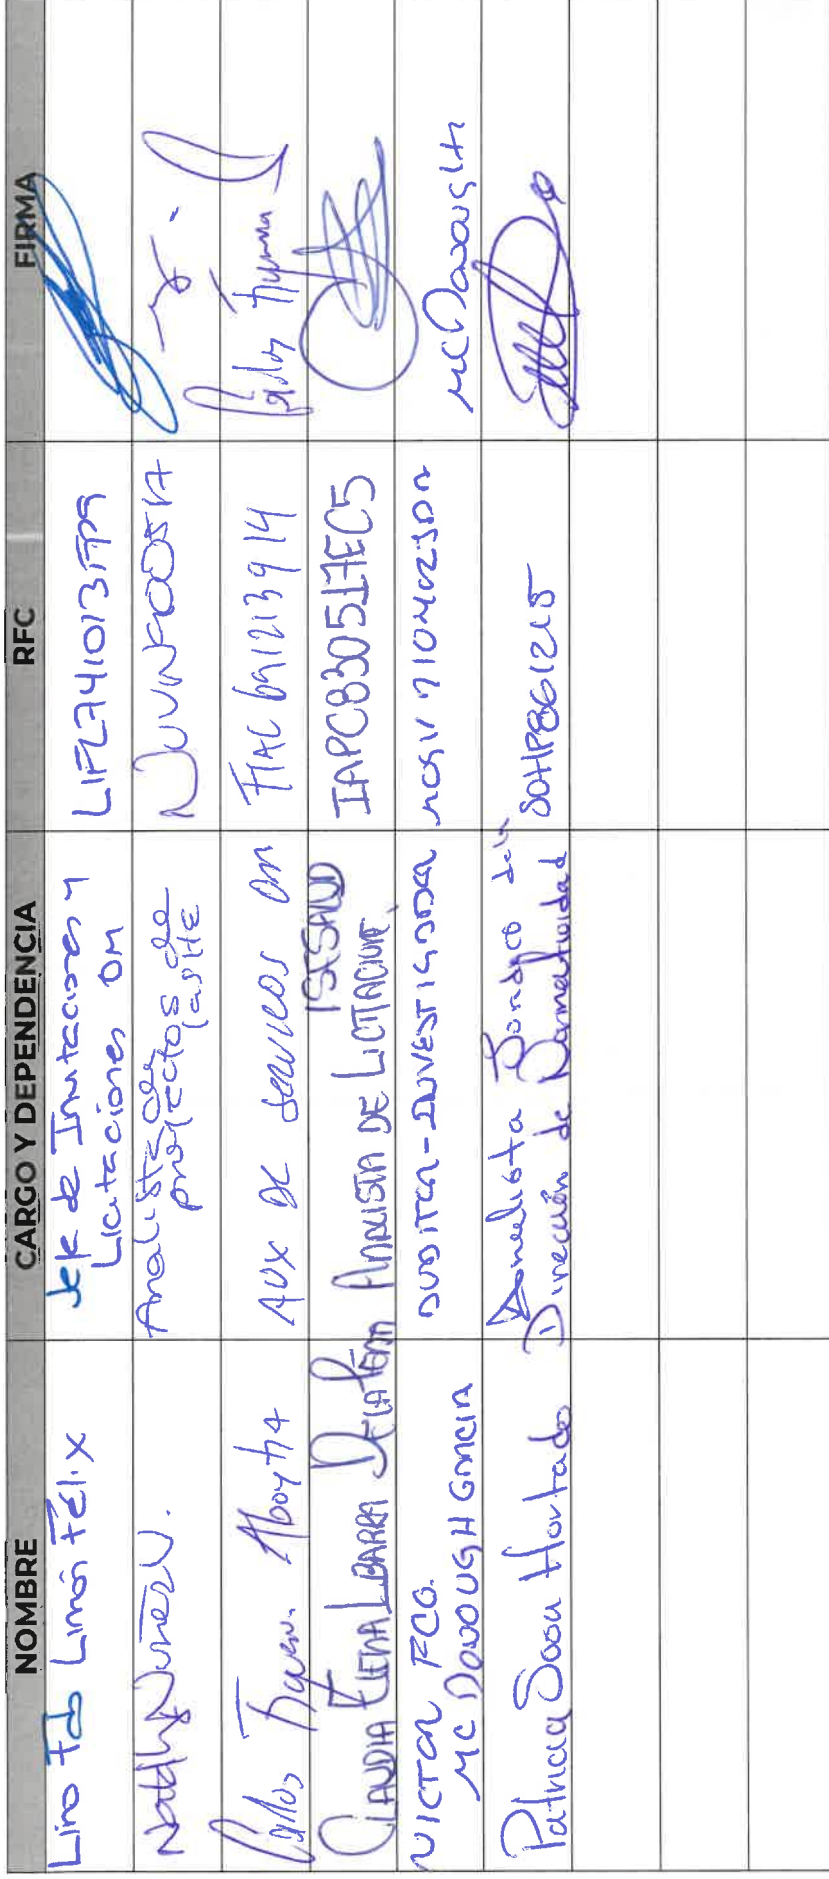 NOMBRE CARGO Y DEPENDENCIA RFC FIRMA
Lino Fdo Limón Félix
Jefe de Invitaciones y
Licitaciones OM
Nathly Nuñez V.
Analista de
proyectos de
la SHE
Carlos Figueroa Aboytia
AUX DE SERVICIOS OM
Carlos Figueroa
CLAUDIA ELENA IBARRA DE LA PEÑA
ANALISTA DE LICITACION,
ISESALUD
IAPC830517EC5
VICTOR FCO.
MC DONOUGH GARCIA
AUDITOR-INVESTIGADOR
McDonough
Patricia Sosa Hurtado
Analista Jurídico de la
Dirección de Normatividad
SOHP861215